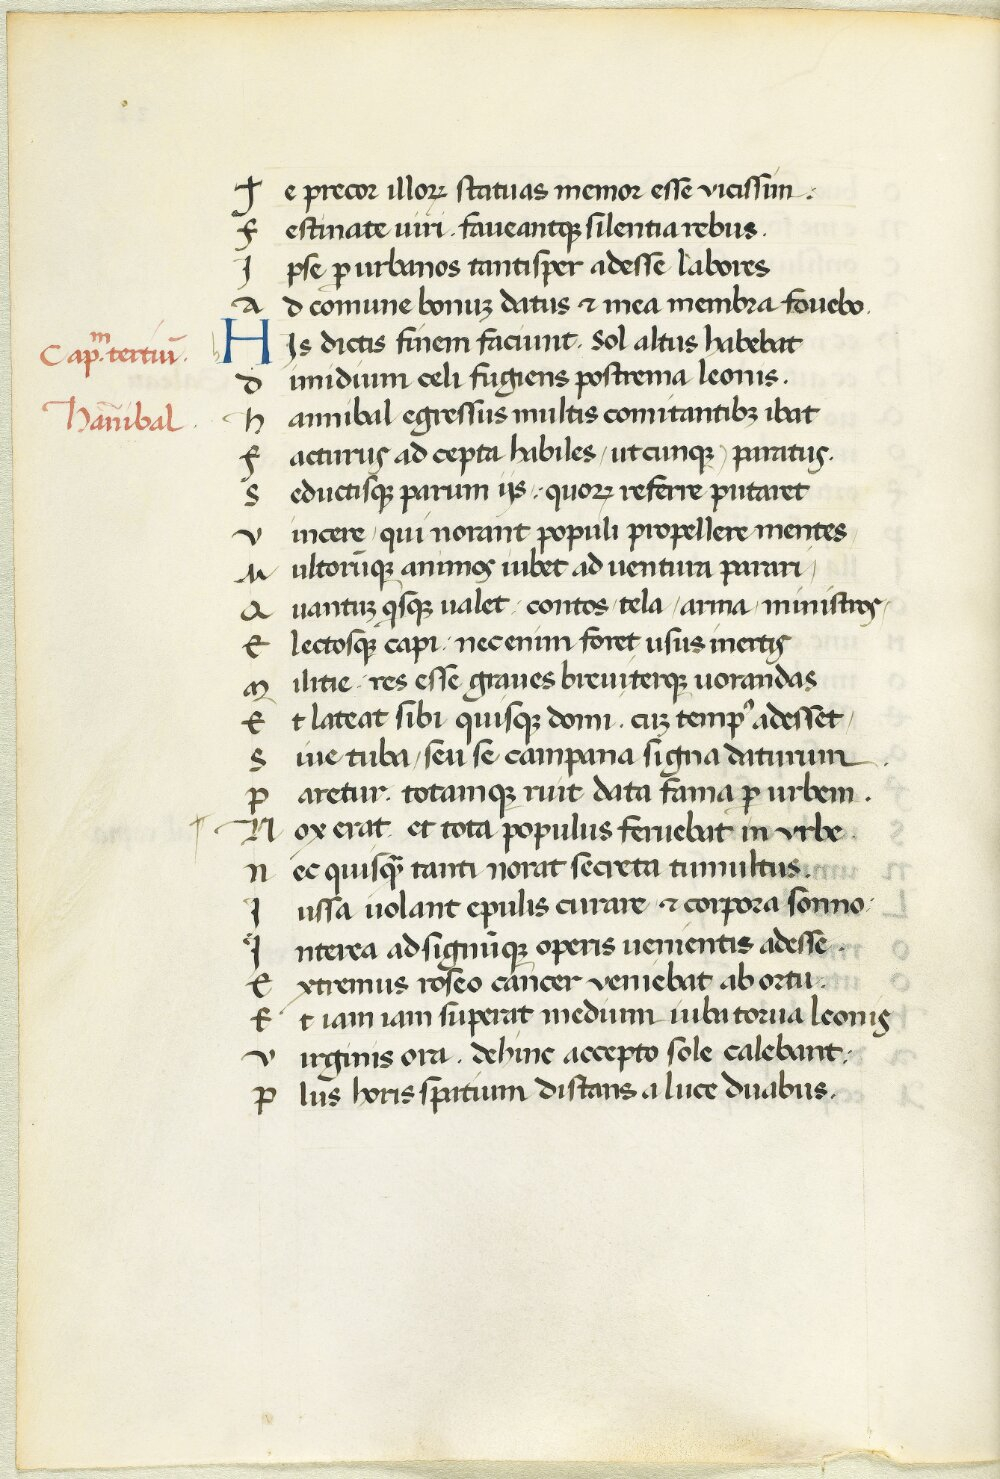 Te precor illoꝝ statuas memor esse vicissim.
Festinate uiri. faueantqꝫ silentia rebus.
Ipse ꝑ urbanos tantisper adesse labores
Ad comune bonuꝫ datus ⁊ mea membra fouebo.
Capᵐ. tertiū.
His dictis finem faciunt. Sol altus habebat
dimidium celi fugiens postrema leonis.
Han̄ibal
hannibal egressus multis comitantibꝫ ibat
facturꝰ ad cepta habiles / utcunqꝫ paratꝰ.
Seductisqꝫ parum ijs. quoꝝ referre putaret
vincere / qui norant populi propellere mentes
Multorūqꝫ animos iubet ad uentura parari
Quantuꝫ qͥsqꝫ ualet. contos / tela / arma / ministros
Electosqꝫ capi. nec enim foret usus inertis
Militie. res esse graues breuiterqꝫ uorandas
Et lateat sibi quisqꝫ domi. cuꝫ tempꝰ adesset
Siue tuba / seu se campana signa daturum
Paretur. totamqꝫ ruit data fama ꝑ urbem.
Nox erat. et tota populus feruebat in vrbe.
nec quisqꝫ̃ tanti norat secreta tumultus.
Iussa uolant epulis curare ⁊ corpora somno.
Interea ad signūqꝫ operis uenientis adesse.
Extremus roseo cancer veniebat ab ortu.
Et iam iam superat medium iuba torua leonis
virginis ora. dehinc accepto sole calebant.
plus horis spatium distans a luce duabus.